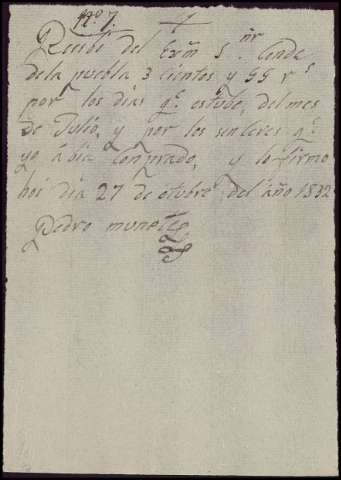 Nº 7. +
Recibi del Exmº Sʳ. Conde
dela puebla 3 cientos y 55 rˢ
por los dias qᵉ estube, del mes
de Julio, y por los qᵉ
yo abia conprado, y lo firmo
hoi dia 27 de otubrᵉ del año 1832
Pedro